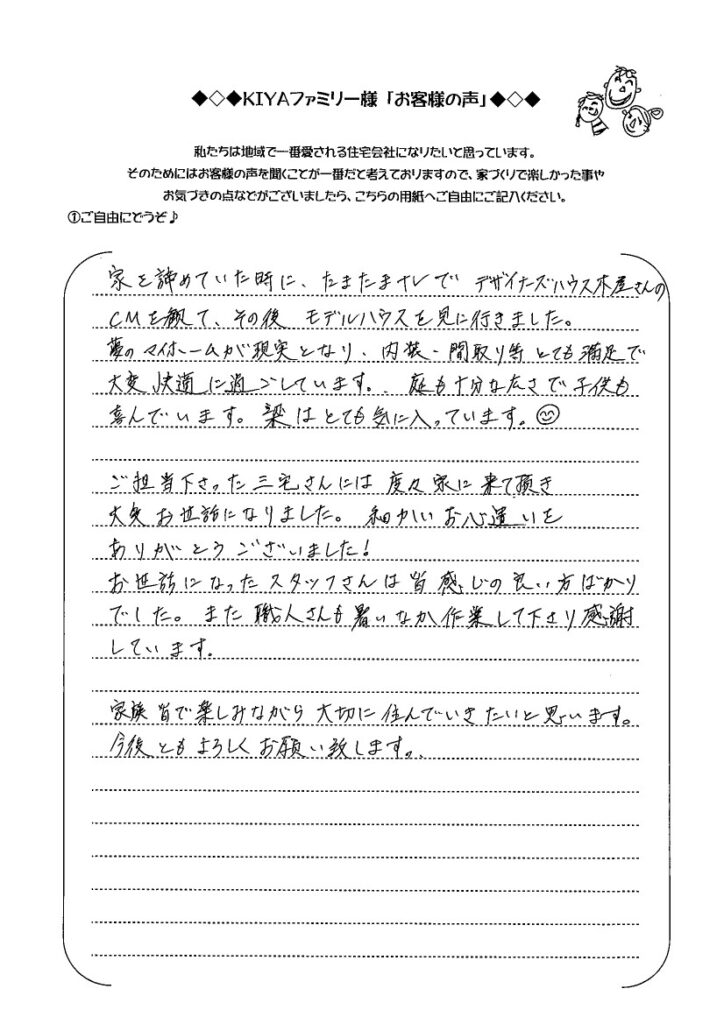 ◆◇◆KIYAファミリー様「お客様の声」◆◇◆
私たちは地域で一番愛される住宅会社になりたいと思っています。
そのためにはお客様の声を聞くことが一番だと考えておりますので、家づくりで楽しかった事や
お気づきの点などがございましたら、こちらの用紙へご自由にご記入ください。
①ご自由にどうぞ♪
家を諦めていた時に、たまたまTVで デザイナーズハウス木屋さんの
CMを観て、その後 モデルハウスを見に行きました。
夢のマイホームが現実となり、内装・間取り等とても満足で
大変 快適に過ごしています。庭も十分な広さで子供も
喜んでいます。梁はとても気に入っています。
ご担当下さった三宅さんには 度々家に来て頂き
大変お世話になりました。細かいお心遣いを
ありがとうございました!
お世話になったスタッフさんは皆感じの良い方ばかり
でした。また職人さんも暑いなか作業して下さり感謝
しています。
家族皆で楽しみながら大切に住んでいきたいと思います。
今後ともよろしくお願い致します。